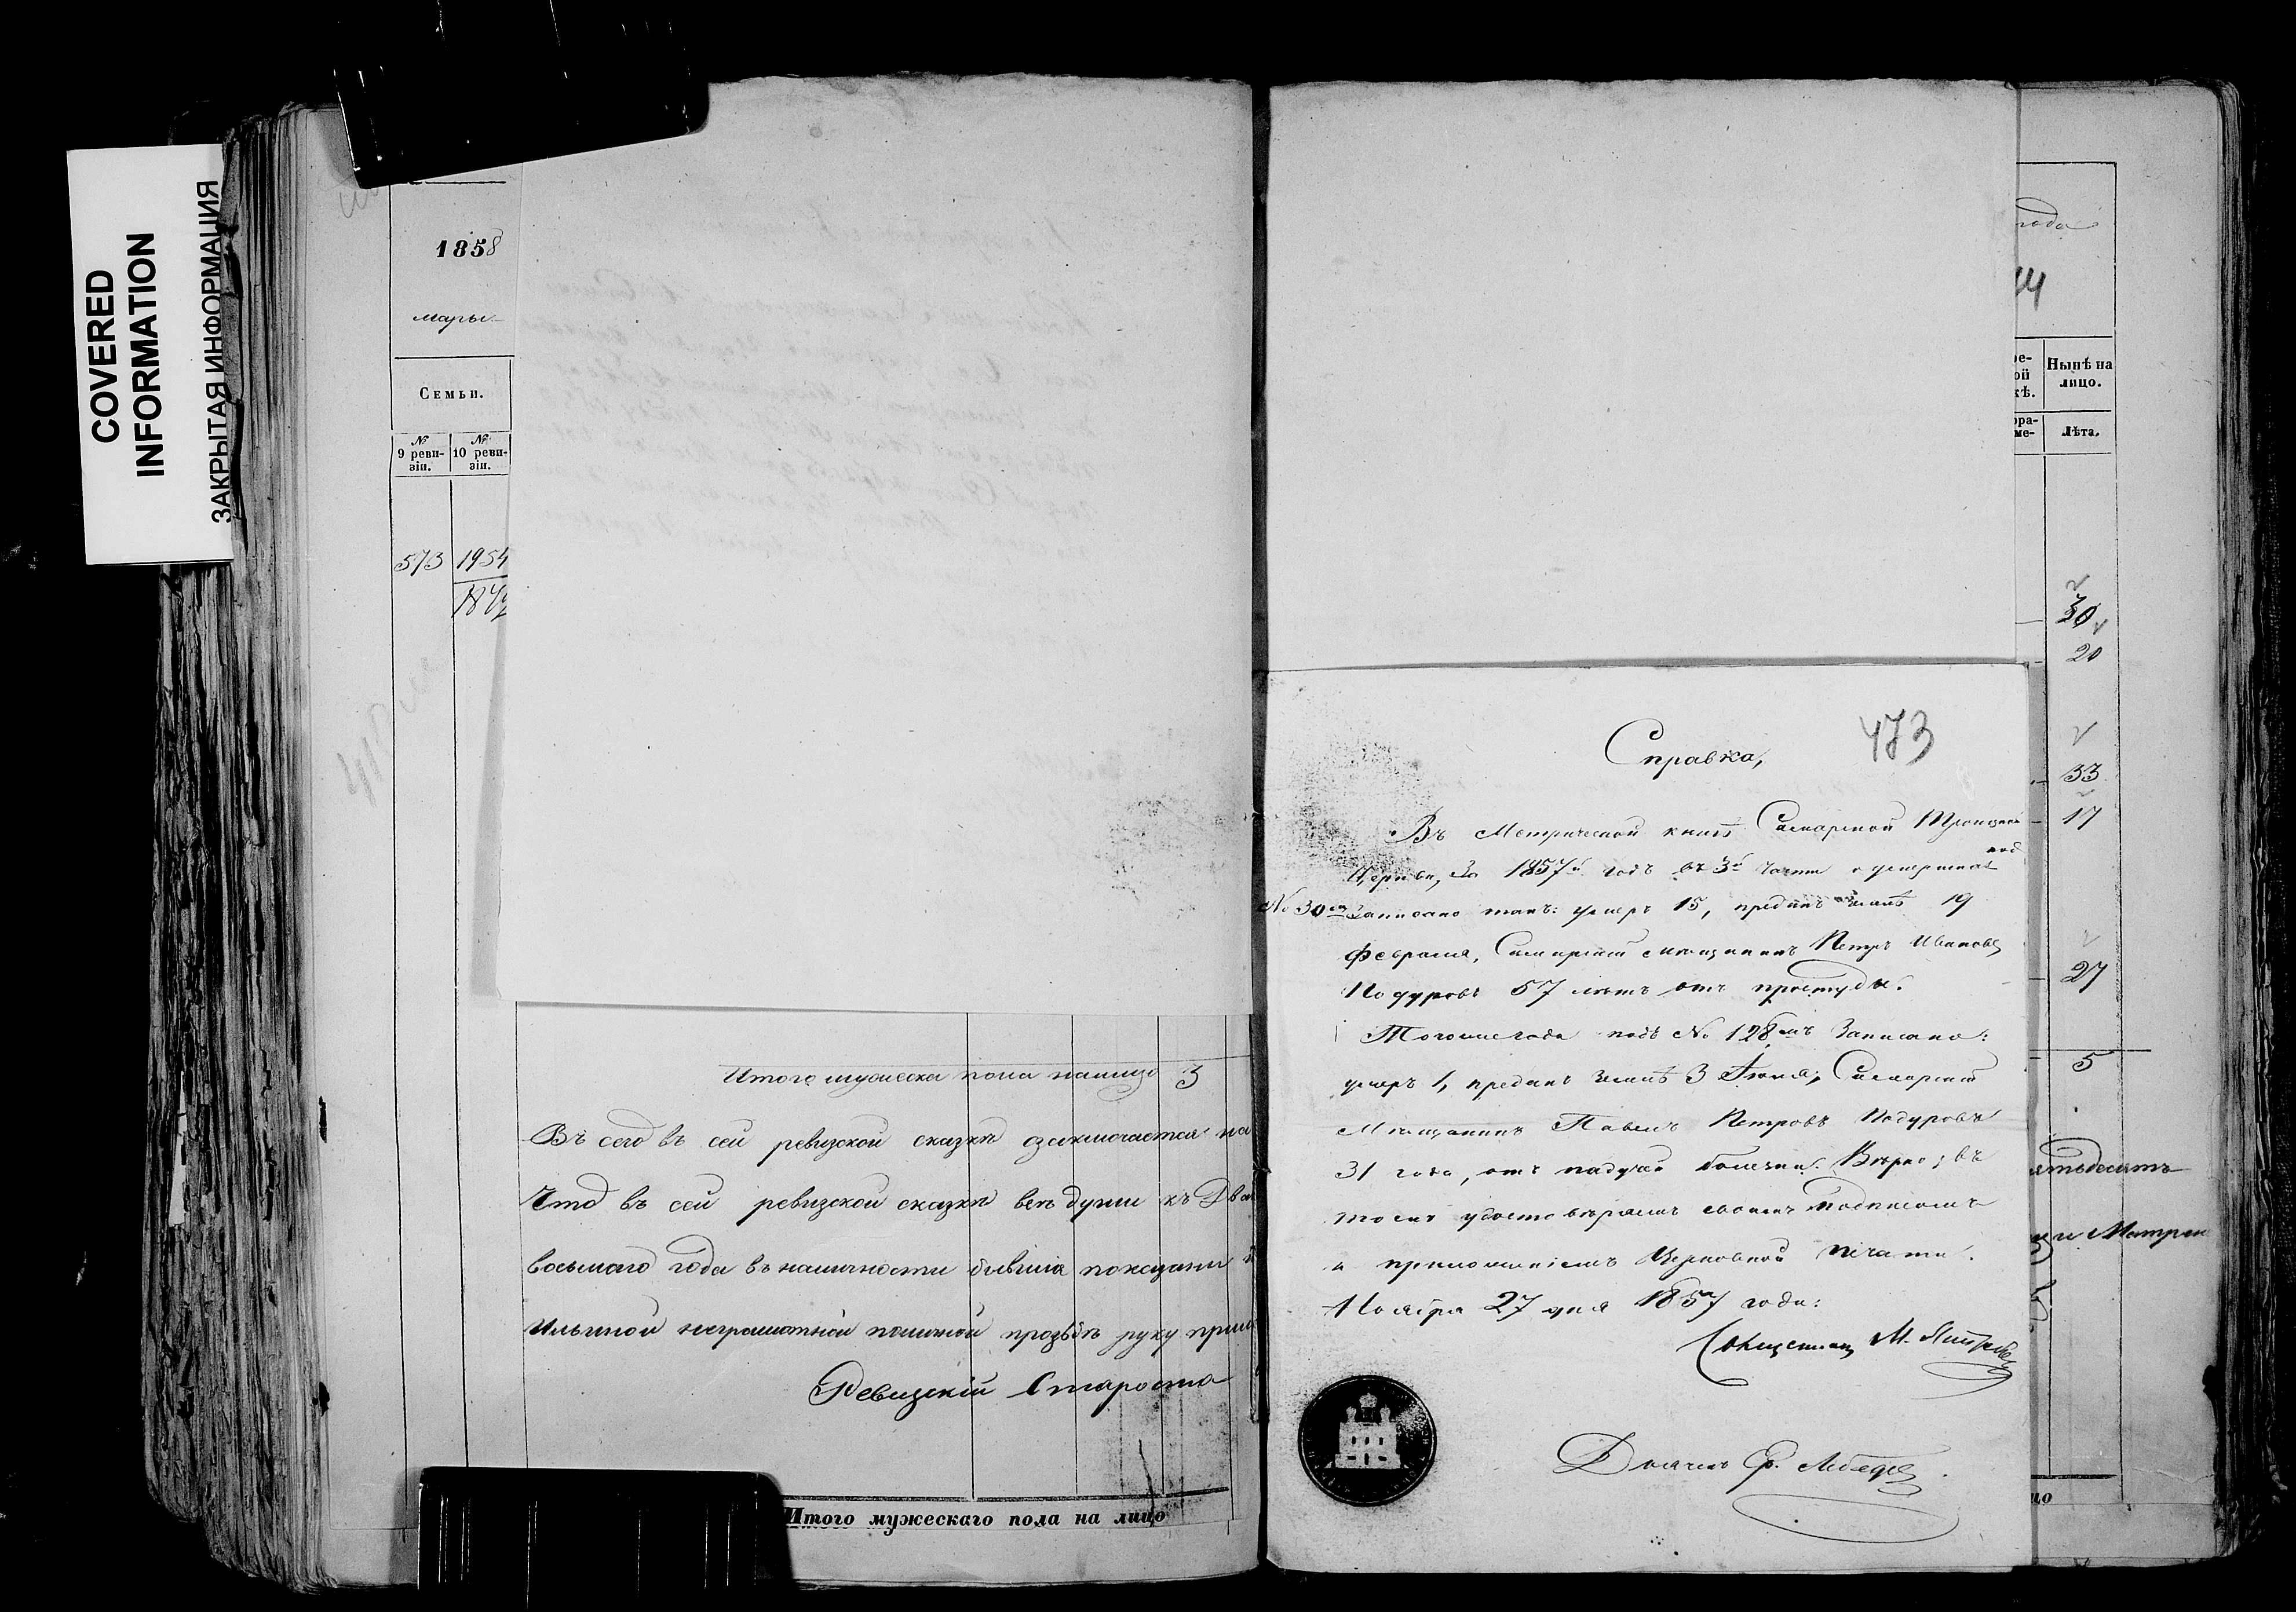 COVERED
INFORMATION
ЗАКРЫТАЯ ИНФОРМАЦИЯ
1858
марта
Семьи.
№ 9 реви-зіи.
№ 10 реви-зіи.
573 1954
Итого мужеска пола налицо 3
Въ сей ревизской сказкѣ
Что въ сей ревизской сказкѣ всѣ души къ
восьмаго года въ наличности бывшія показаны
Ильиной неграмотной личной прозьбѣ руку
Ревизскій Староста
Итого мужескаго пола на лицо
473
Справка,
Въ Метрической книгѣ Самарской Троицкой
Церкви, за 1857й годъ въ 3й части о умершихъ под
№ 30мъ Записано такъ: умеръ 15, преданъ землѣ 19
Февраля, Самарскій мѣщанинъ Петръ Ивановъ
Подуровъ 57 лѣтъ отъ простуды.
Тогоже года подъ № 128мъ Записано:
умеръ 1, преданъ землѣ 3 Іюня, Самарскій
Мѣщанинъ Павелъ Петровъ Подуровъ
31 года, отъ падучей болезни. Вѣрно; въ
томъ удостовѣряемъ своимъ подписомъ
и приложеніемъ Церковной печати.
Ноября 27 дня 1857 года:
Священникъ М.
Діаконъ Ф. Лебедев
года
Нынѣ на
лицо.
Лѣта.
30
20
33
17
27
5